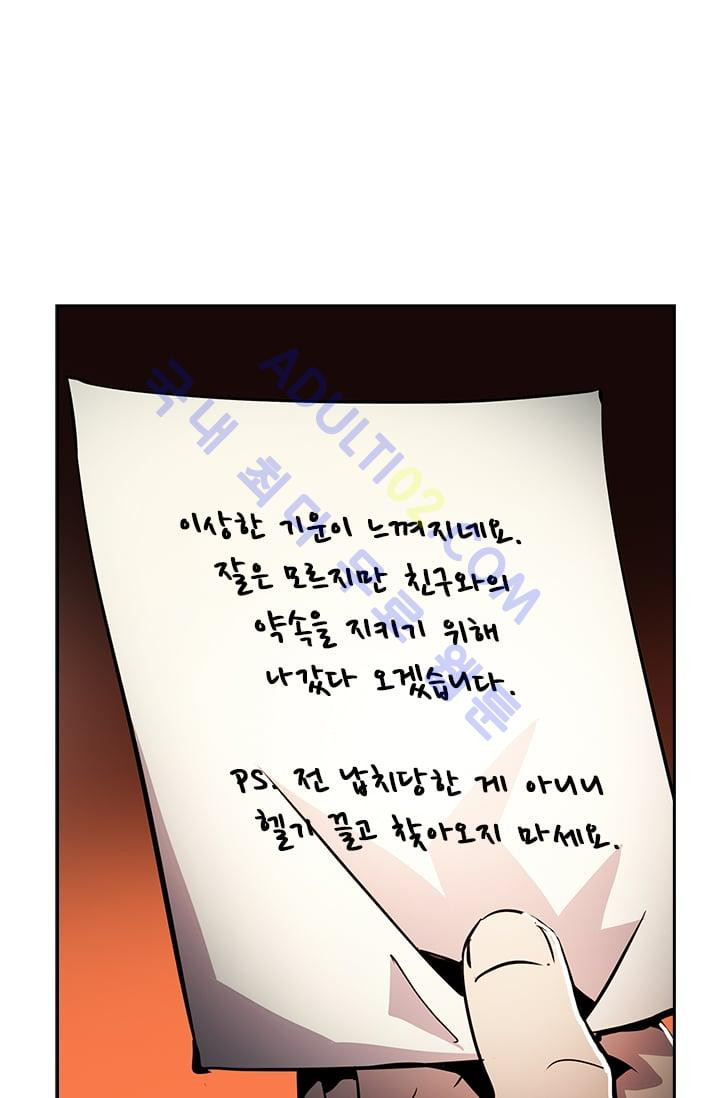 이상한 기운이 느껴지네요.
잘은 모르지만 친구와의
약속을 지키기 위해
나갔다 오겠습니다.
PS. 전 납치당한 게 아니니
헬기 끌고 찾아오지 마세요.
ADULTI02.COM
국내 최대 무료 웹툰